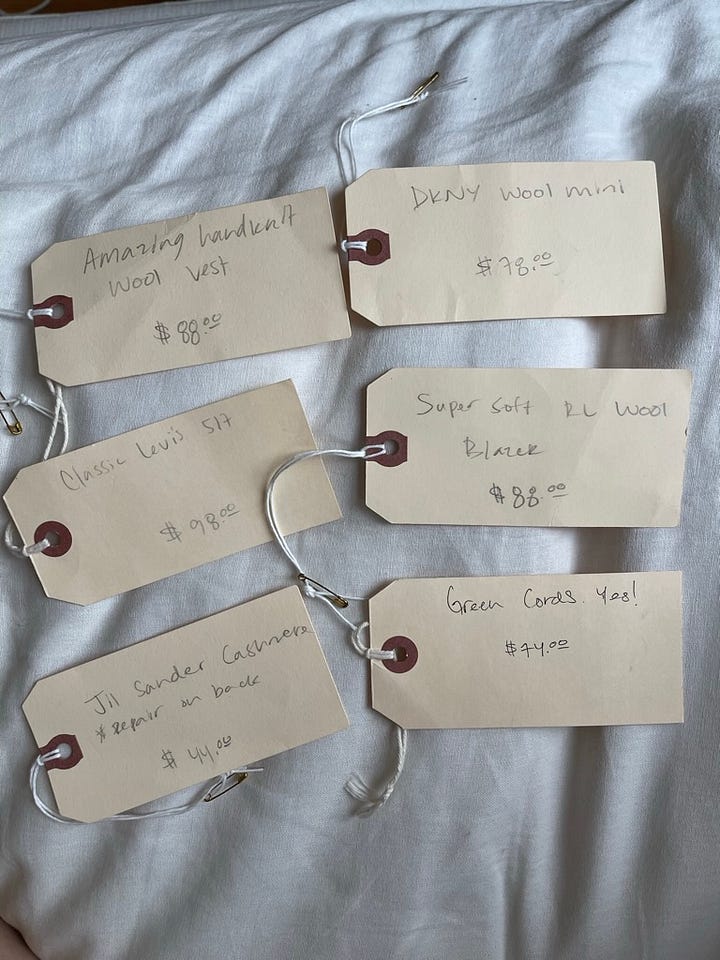 Amazing handknit
wool vest
$88.00
DKNY wool mini
$78.00
Classic Levis 517
$98.00
Super Soft RL Wool
Blazer
$88.00
Jil Sander Cashmere
*repair on back
$44.00
Green Cords. Yes!
$74.00